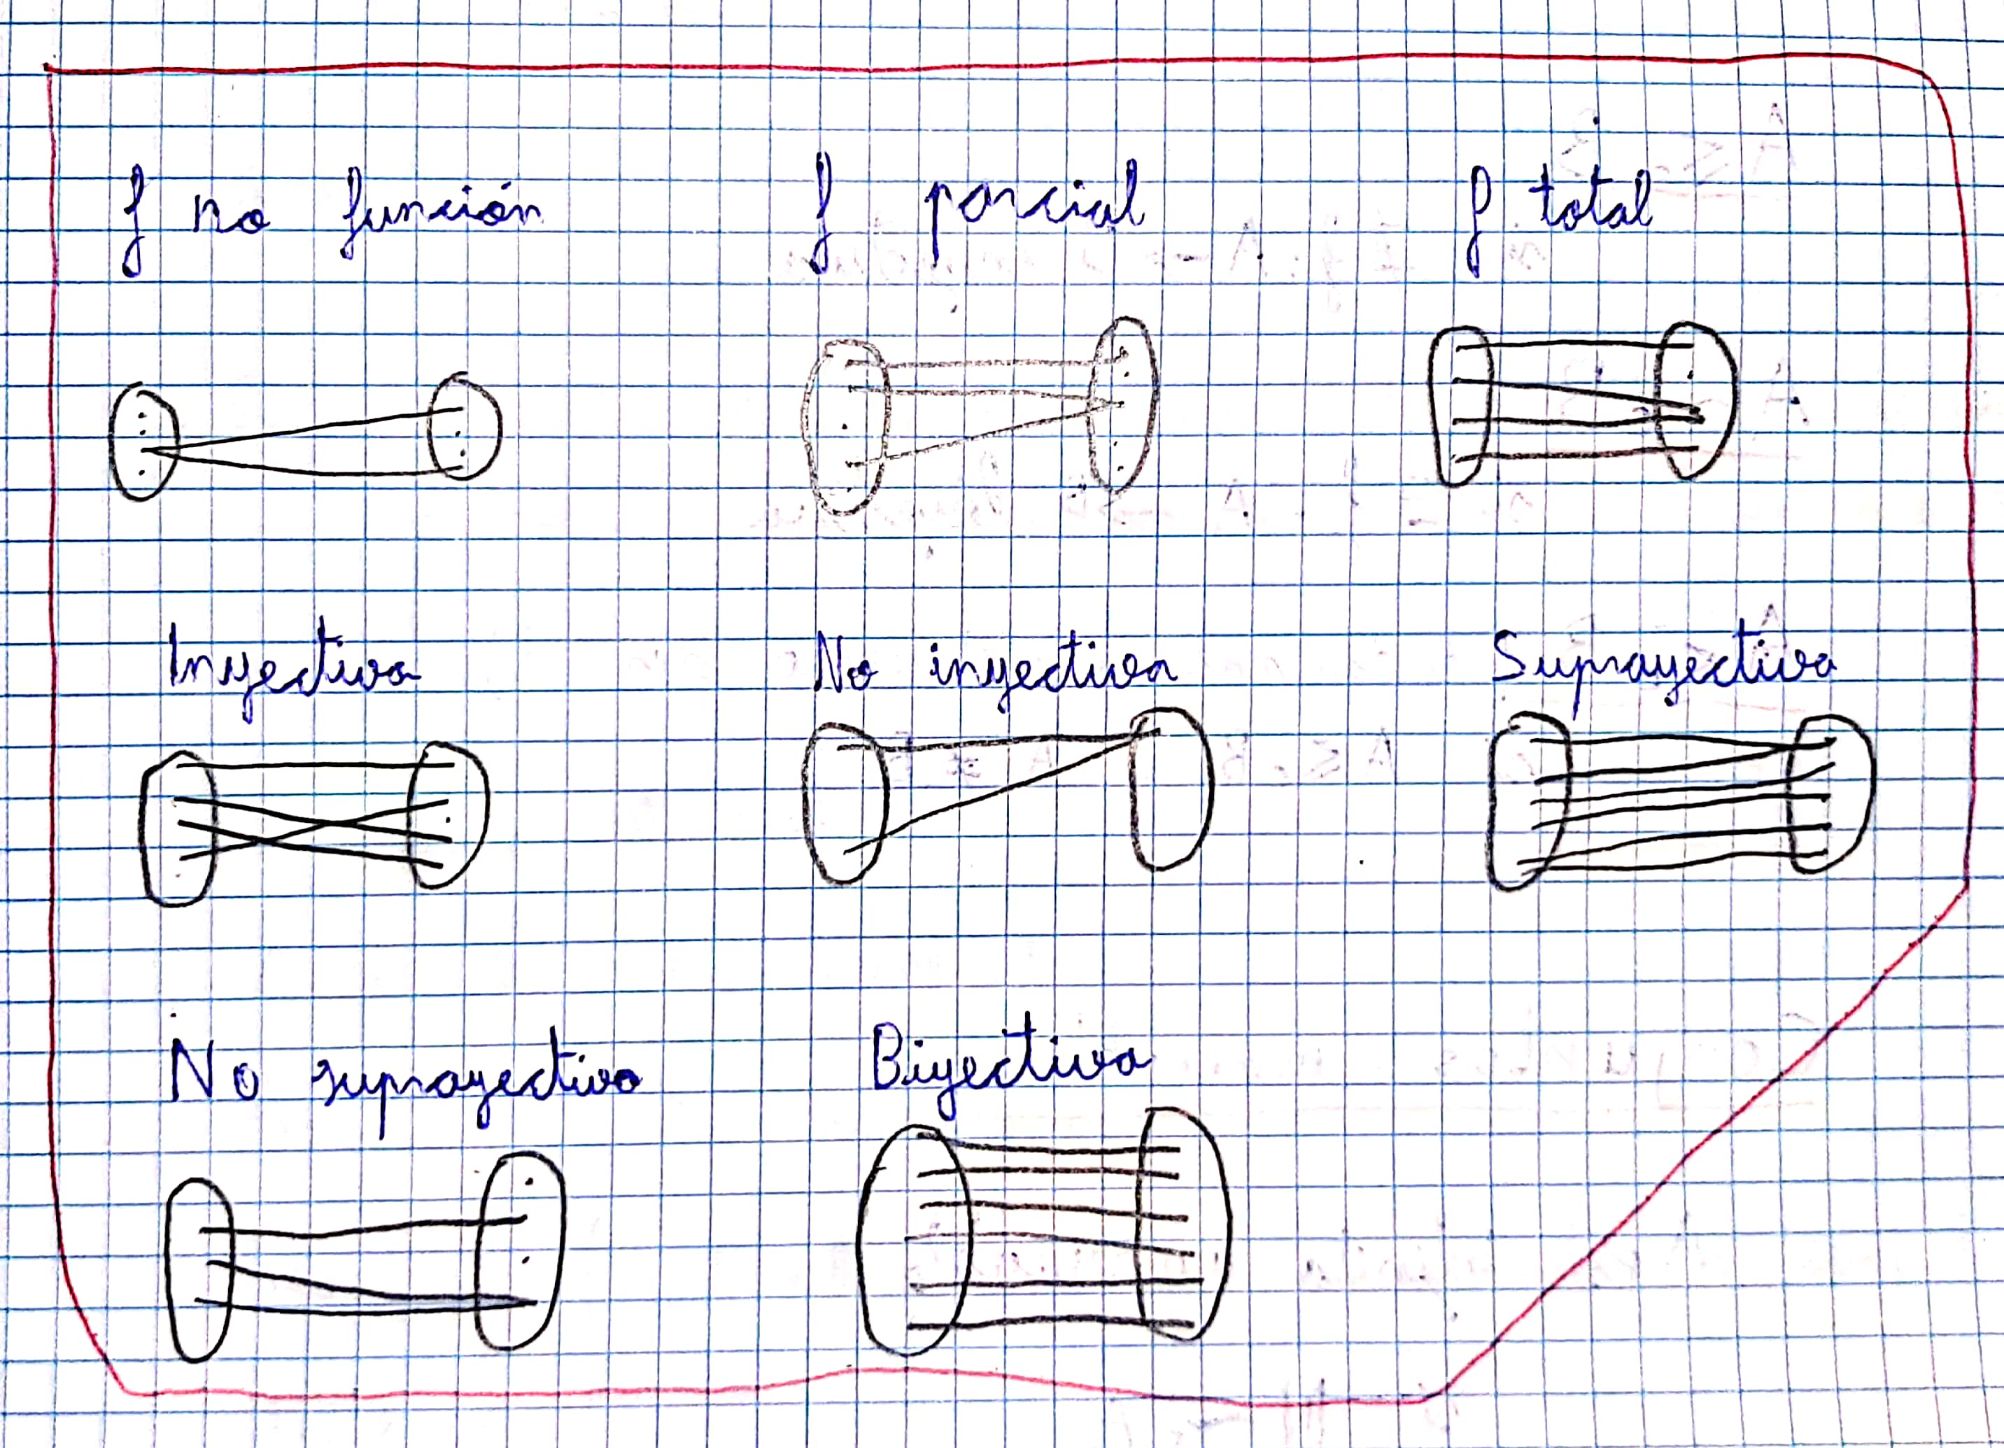 f no función
f parcial
f total
Inyectiva
No inyectiva
Suprayectiva
No suprayectiva
Biyectiva